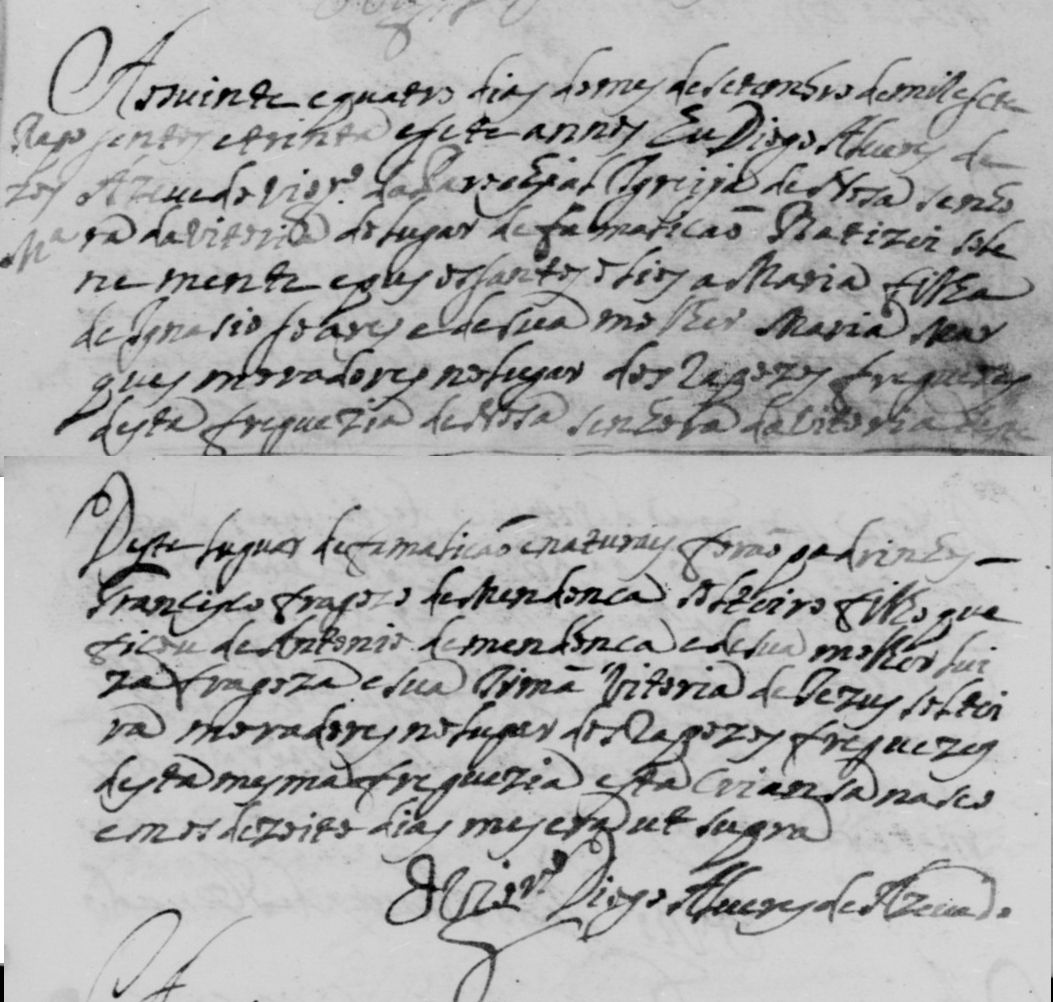 Aos vinte e quatro dias do mes de setembro de mil e sete
Rapo sentos e trinta e sete annos Eu Diogo Alueres de
zos Azeuedo Vigr.º da Parochial Igreija de Nosa senho
Mª ra da Vitoria do lugar de famalicaõ Batizei sole
ne mente e pus os santos olios a Maria filha
de Ignasio soares e de sua molher Maria Mar
ques moradores no lugar dos Rapozos freguezes
desta freguezia de Nosa senhora da Vitoria deste
Deste luguar de famalicaõ e naturais foraõ padrinhos
Francisco fragozo de Mendonca solteiro filho que
ficou de Antonio de mendonca e de sua molher Lui
za fragoza e sua Irmã Vitoria de Jezus soltei
ra moradores no lugar dos Rapozos freguezes
desta mesma freguezia esta Criansa nasceo
em os dezoito dias mes era ut supra
O Vigr.º Diogo Alueres de Azeuedo